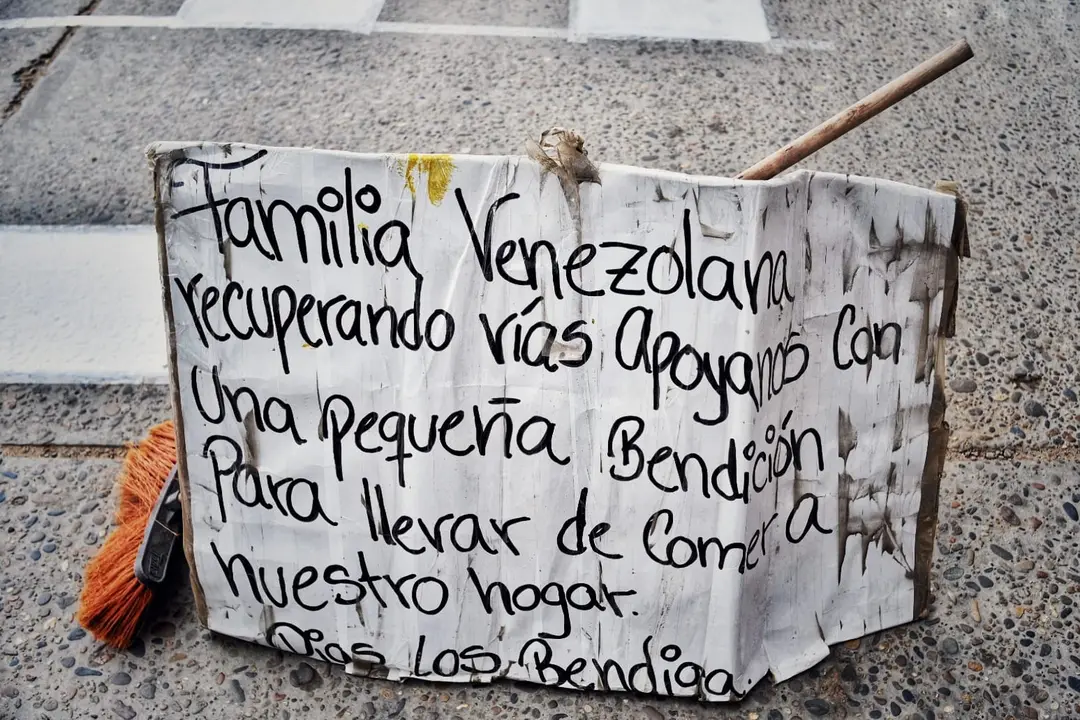 Familia Venezolana
recuperando vías Apoyanos Con
Una pequeña Bendición
Para llevar de Comer a
nuestro hogar.
Dios Los Bendiga